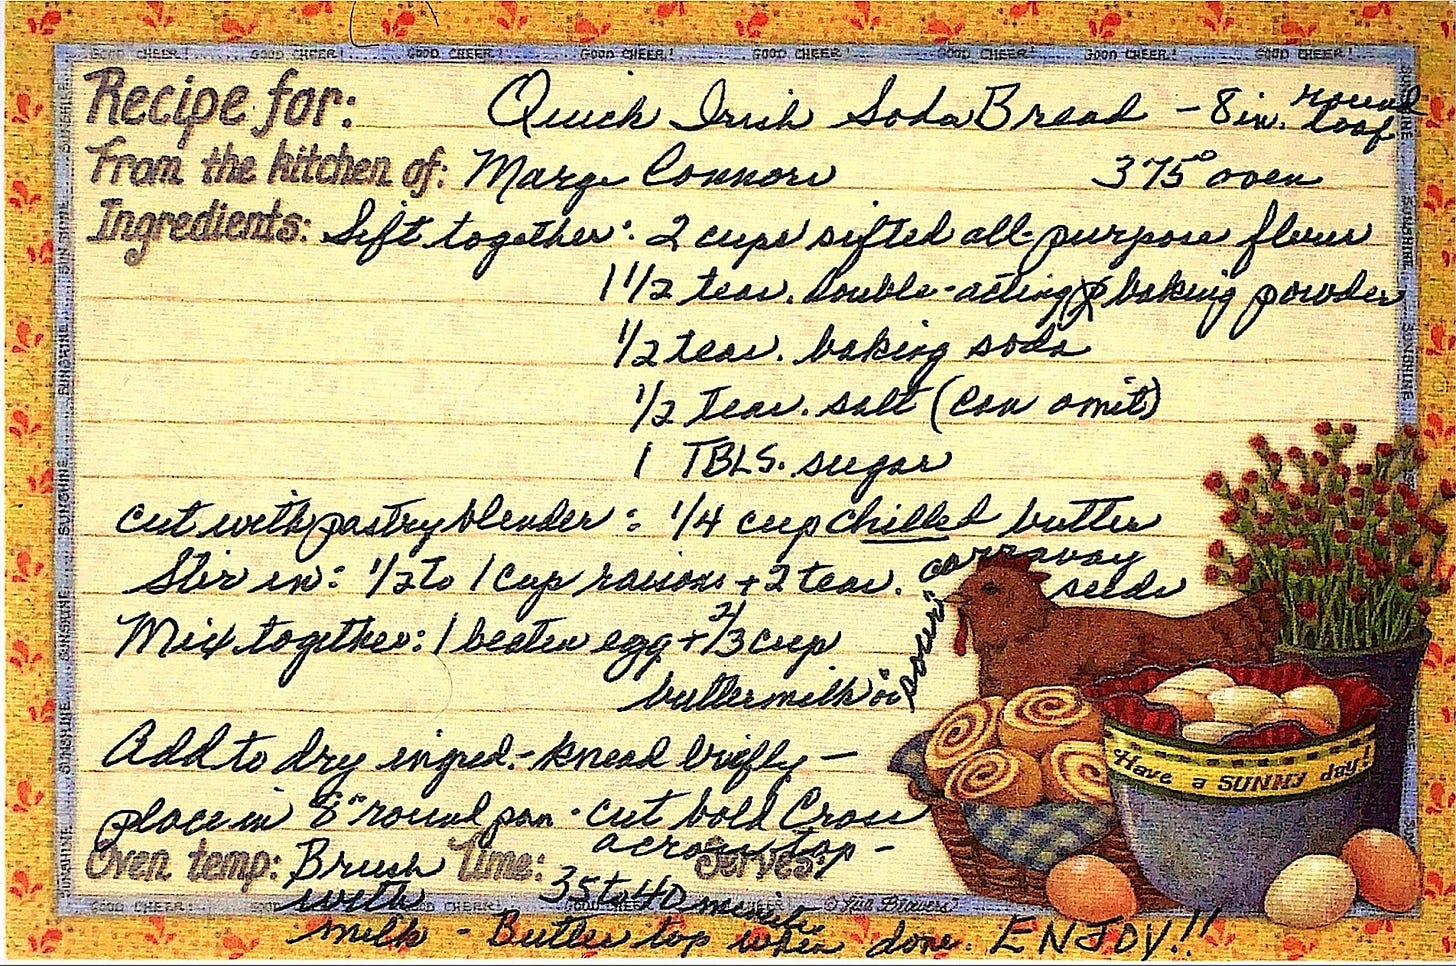 GOOD CHEER! GOOD CHEER! GOOD CHEER! GOOD CHEER! GOOD CHEER! GOOD CHEER! GOOD CHEER! GOOD CHEER!
Recipe for: Quick Irish Soda Bread - 8 in. round loaf
From the kitchen of: Marge Connors 375° oven
Ingredients: Sift together: 2 cups sifted all-purpose flour
1 1/2 teas. double-acting baking powder
1/2 teas. baking soda
1/2 teas. salt (can omit)
1 TBLS. sugar
cut with pastry blender: 1/4 cup chilled butter
Stir in: 1/2 to 1 cup raisins + 2 teas. carravay seeds
Mix together: 1 beaten egg + 2/3 cup
buttermilk or "sour"
Add to dry ingred. - knead briefly -
place in 8" round pan - cut bold Cross
across top -
Oven temp: Brush Time: Serves:
with 35 to 40 minutes.
milk - Butter top when done. ENJOY!!
Have a SUNNY day!
SUNSHINE SUNSHINE SUNSHINE SUNSHINE SUNSHINE SUNSHINE
GOOD CHEER! GOOD CHEER! GOOD CHEER!